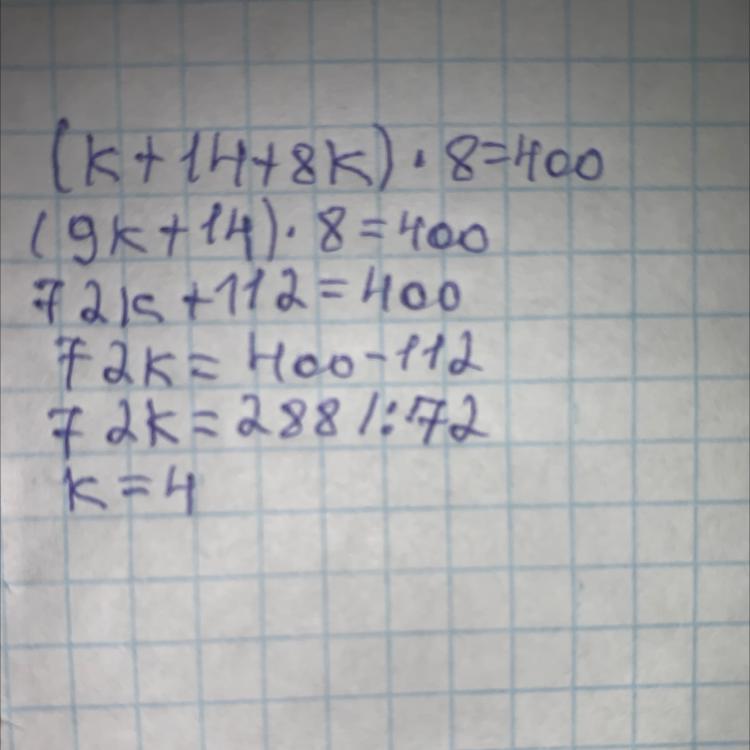 (k+14+8k)·8=400
(9k+14)·8=400
72k+112=400
72k=400-112
72k=288 /:72
k=4